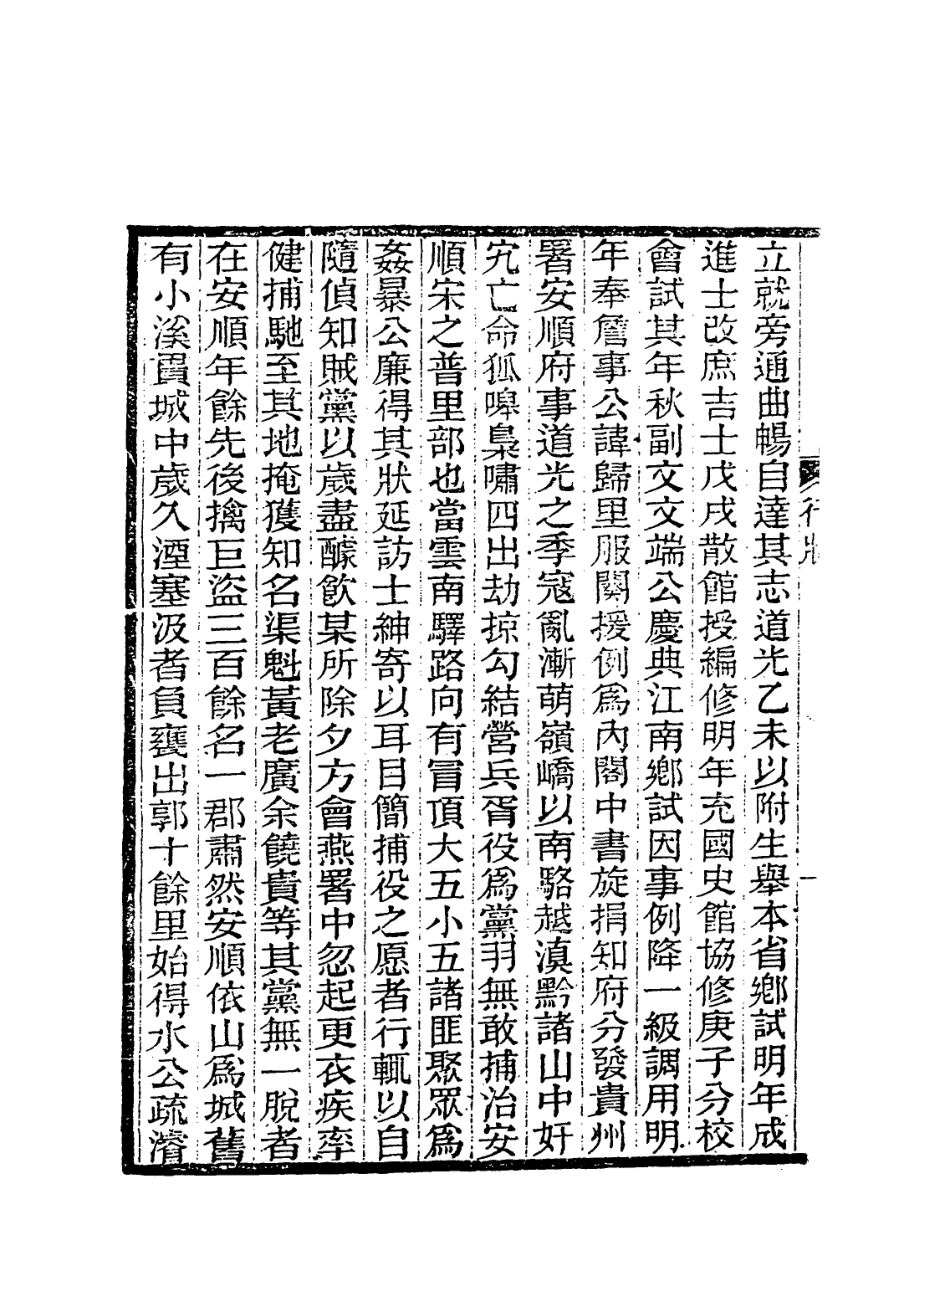 立就旁通曲暢自達其志道光乙未以附生舉本省鄉試明年成
進士改庶吉士戊戌散館授編修明年充國史館協修庚子分校
會試其年秋副文文端公慶典江南鄉試因事例降一級調用明
年奉詹事公諱歸里服闋援例爲內閣中書旋捐知府分發貴州
署安順府事道光之季寇亂漸萌嶺嶠以南駱越滇黔諸山中奸
宄亡命狐嘷梟嘯四出劫掠勾結營兵胥役爲黨羽無敢捕治安
順宋之普里部也當雲南驛路向有冒頂大五小五諸匪聚眾爲
姦暴公廉得其狀延訪士紳寄以耳目簡捕役之愿者行輒以自
隨偵知賊黨以歲盡醵飲某所除夕方會燕署中忽起更衣疾率
健捕馳至其地掩獲知名渠魁黃老廣余饒貴等其黨無一脫者
在安順年餘先後擒巨盜三百餘名一郡肅然安順依山爲城舊
有小溪貫城中歲久湮塞汲者負甕出郭十餘里始得水公疏濬